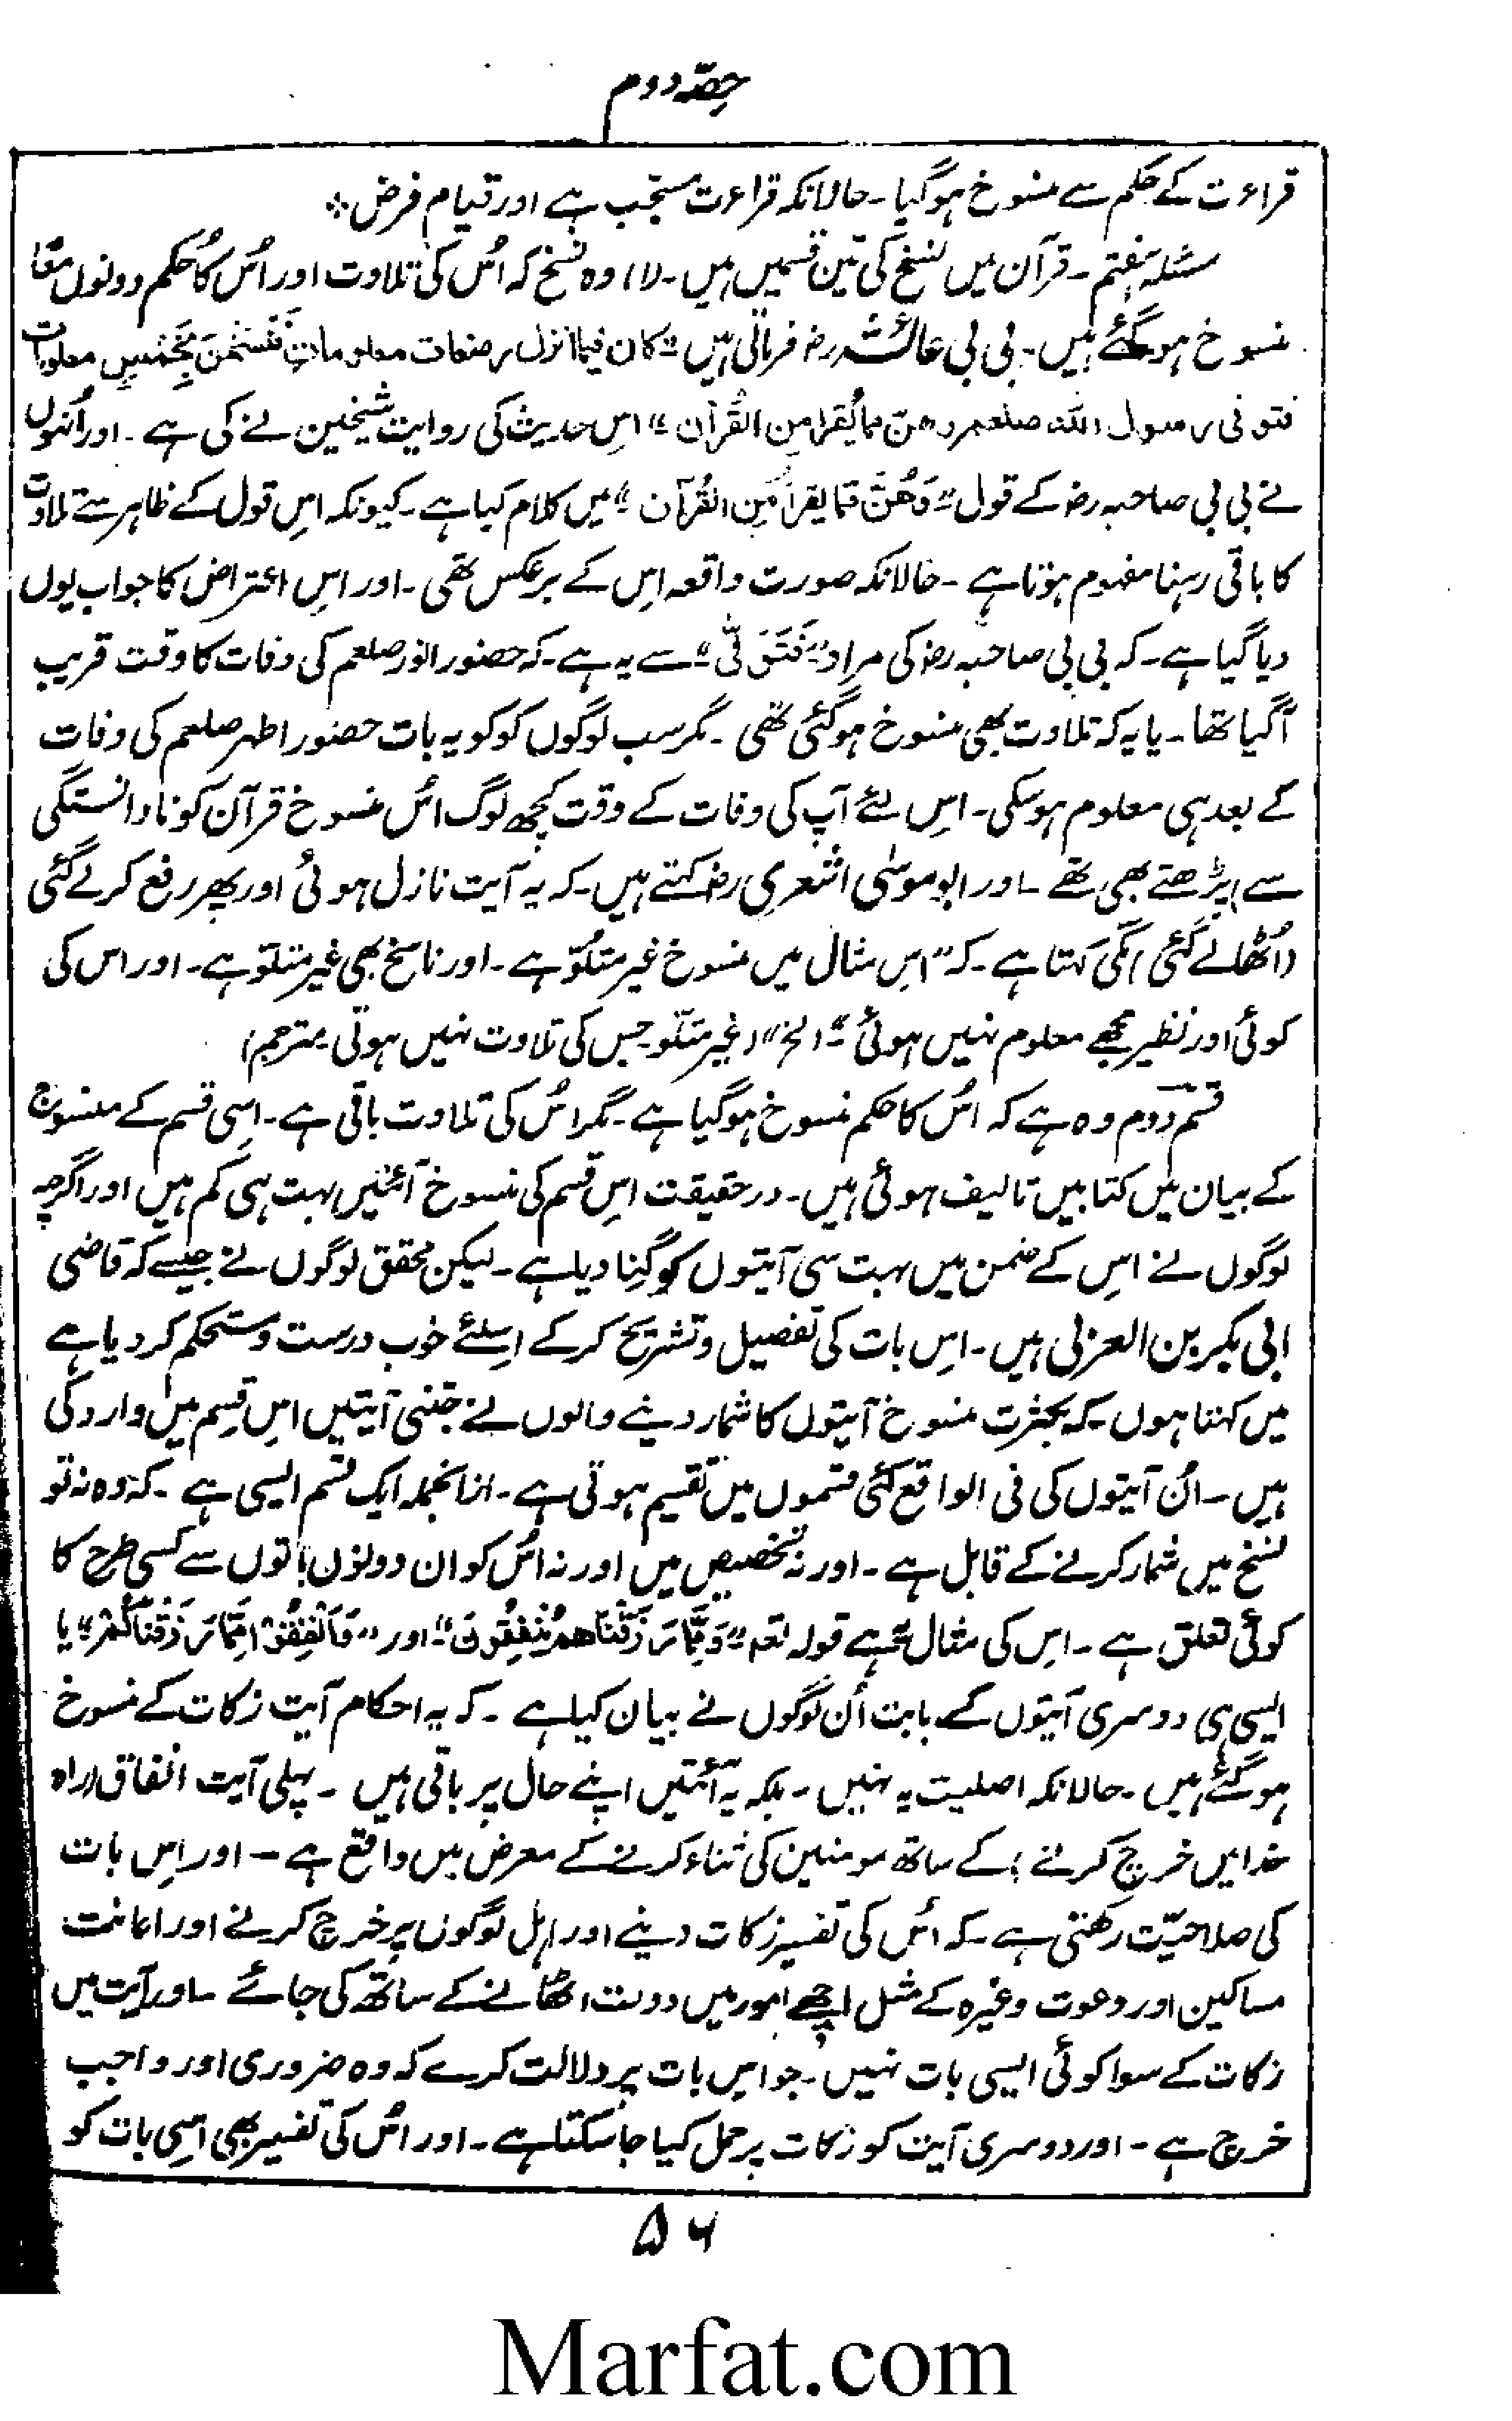 حصّہ دوم
قراءت کے حکم سے منسوخ ہوگیا۔ حالانکہ قراءت مستحب ہے اور قیام فرض ؞
مسئلہ ہفتم۔ قرآن میں نسخ کی تین قسمیں ہیں۔ (۱) وہ نسخ کہ اُس کی تلاوت اور اُس کا حکم دونوں معًا
منسوخ ہوگئے ہیں۔ بی بی عائشہ رضہ فرماتی ہیں "کان فیما انزل رضعات معلوماتٍ فَنُسِخْنَ بِخَمْسٍ معلومات
فتوفی رسول اللہ صلعم وھن مما یُقرا مِن القُرآن" اس حدیث کی روایت شیخین نے کی ہے۔ اور اُنہوں
نے بی بی صاحبہ رضہ کے قول "وَھُنَّ مما یقرأ مِن القُرآن" میں کلام کیا ہے۔ کیونکہ اس قول کے ظاہر سے تلاوت
کا باقی رہنا مفہوم ہوتا ہے۔ حالانکہ صورت واقعہ اِس کے برعکس تھی۔ اور اِس اعتراض کا جواب یوں
دیا گیا ہے۔ کہ بی بی صاحبہ رضہ کی مراد "فَتَوَفّٰی" سے یہ ہے۔ کہ حضور انور صلعم کی وفات کا وقت قریب
آگیا تھا۔ یا یہ کہ تلاوت بھی منسوخ ہوگئی تھی۔ مگر سب لوگوں کوکو یہ بات حضور اطہر صلعم کی وفات
کے بعد ہی معلوم ہوسکی۔ اِس لئے آپ کی وفات کے وقت کچھ لوگ اُس منسوخ قرآن کو نادانستگی
سے پڑھتے بھی تھے۔ اور ابوموسٰی اشعری رضہ کہتے ہیں۔ کہ یہ آیت نازل ہوئی اور پھر رفع کرلے گئی
(اُٹھالے گئی) مکی کہتا ہے۔ کہ "اِس مثال میں منسوخ غیر متلُوّ ہے۔ اور ناسخ بھی غیر متلوّ ہے۔ اور اس کی
کوئی اور نظیر مجھے معلوم نہیں ہوئی" الخ" (غیر متلّو جس کی تلاوت نہیں ہوتی مترجم)
قسم دوم وہ ہے کہ اُس کا حکم منسوخ ہوگیا ہے۔ مگر اُس کی تلاوت باقی ہے۔ اِسی قسم کے منسوخ
کے بیان میں کتابیں تالیف ہوئی ہیں۔ درحقیقت اِس قسم کی منسوخ آئتیں بہت ہی کم ہیں اور اگرچہ
لوگوں نے اِس کے ضمن میں بہت سی آیتوں کو گِنا دیا ہے۔ لیکن محقق لوگوں نے جیسے کہ قاضی
ابی بکر بن العربی ہیں۔ اِس بات کی تفصیل و تشریح کرکے اِسلئے خوب درست و مستحکم کردیا ہے
میں کہتا ہوں۔ کہ بکثرت منسوخ آیتوں کا شمار دینے والوں نے جتنی آیتیں اِس قسم میں وارد کی
ہیں۔ اُن آیتوں کی فی الواقع کئی قسموں میں تقسیم ہوتی ہے۔ ازانجملہ ایک قسم ایسی ہے۔ کہ وہ نہ تو
نسخ میں شمار کرنے کے قابل ہے۔ اور نہ تخصیص میں اور نہ اُس کو ان دونوں باتوں سے کسی طرح کا
کوئی تعلق ہے۔ اِس کی مثال ہے قولہ تعہ "وَمِمَّا رَزَقْنَاھُمْ یُنْفِقُونَ" اور "وَاَنْفِقُوْا مِمَّا رَزَقْنَاکُمْ" یا
ایسی ہی دوسری آیتوں کے بابت اُن لوگوں نے بیان کیا ہے۔ کہ یہ احکام آیت زکات کے منسوخ
ہوگئے ہیں۔ حالانکہ اصلیت یہ نہیں۔ بلکہ یہ آئتیں اپنے حال پر باقی ہیں۔ پہلی آیت انفاق (راہ
خدا میں خرچ کرنے) کے ساتھ مومنین کی ثناء کرنے کے معرض میں واقع ہے۔ اور اِس بات
کی صلاحیّت رکھتی ہے۔ کہ اُس کی تفسیر زکات دینے اور اہل لوگوں پر خرچ کرنے اور اعانت
مساکین اور دعوت وغیرہ کے مثل اچھے امور میں دولت اٹھانے کے ساتھ کی جائے۔ اور آیت میں
زکات کے سوا کوئی ایسی بات نہیں۔ جو اِس بات پر دلالت کرے کہ وہ ضروری اور واجب
خرچ ہے۔ اور دوسری آیت کو زکات پر حمل کیا جاسکتا ہے۔ اور اُس کی تفسیر بھی اسی بات کو
۵۶
Marfat.com